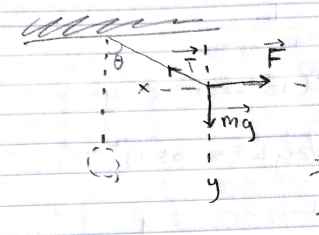 θ
T
F
x
mg
y